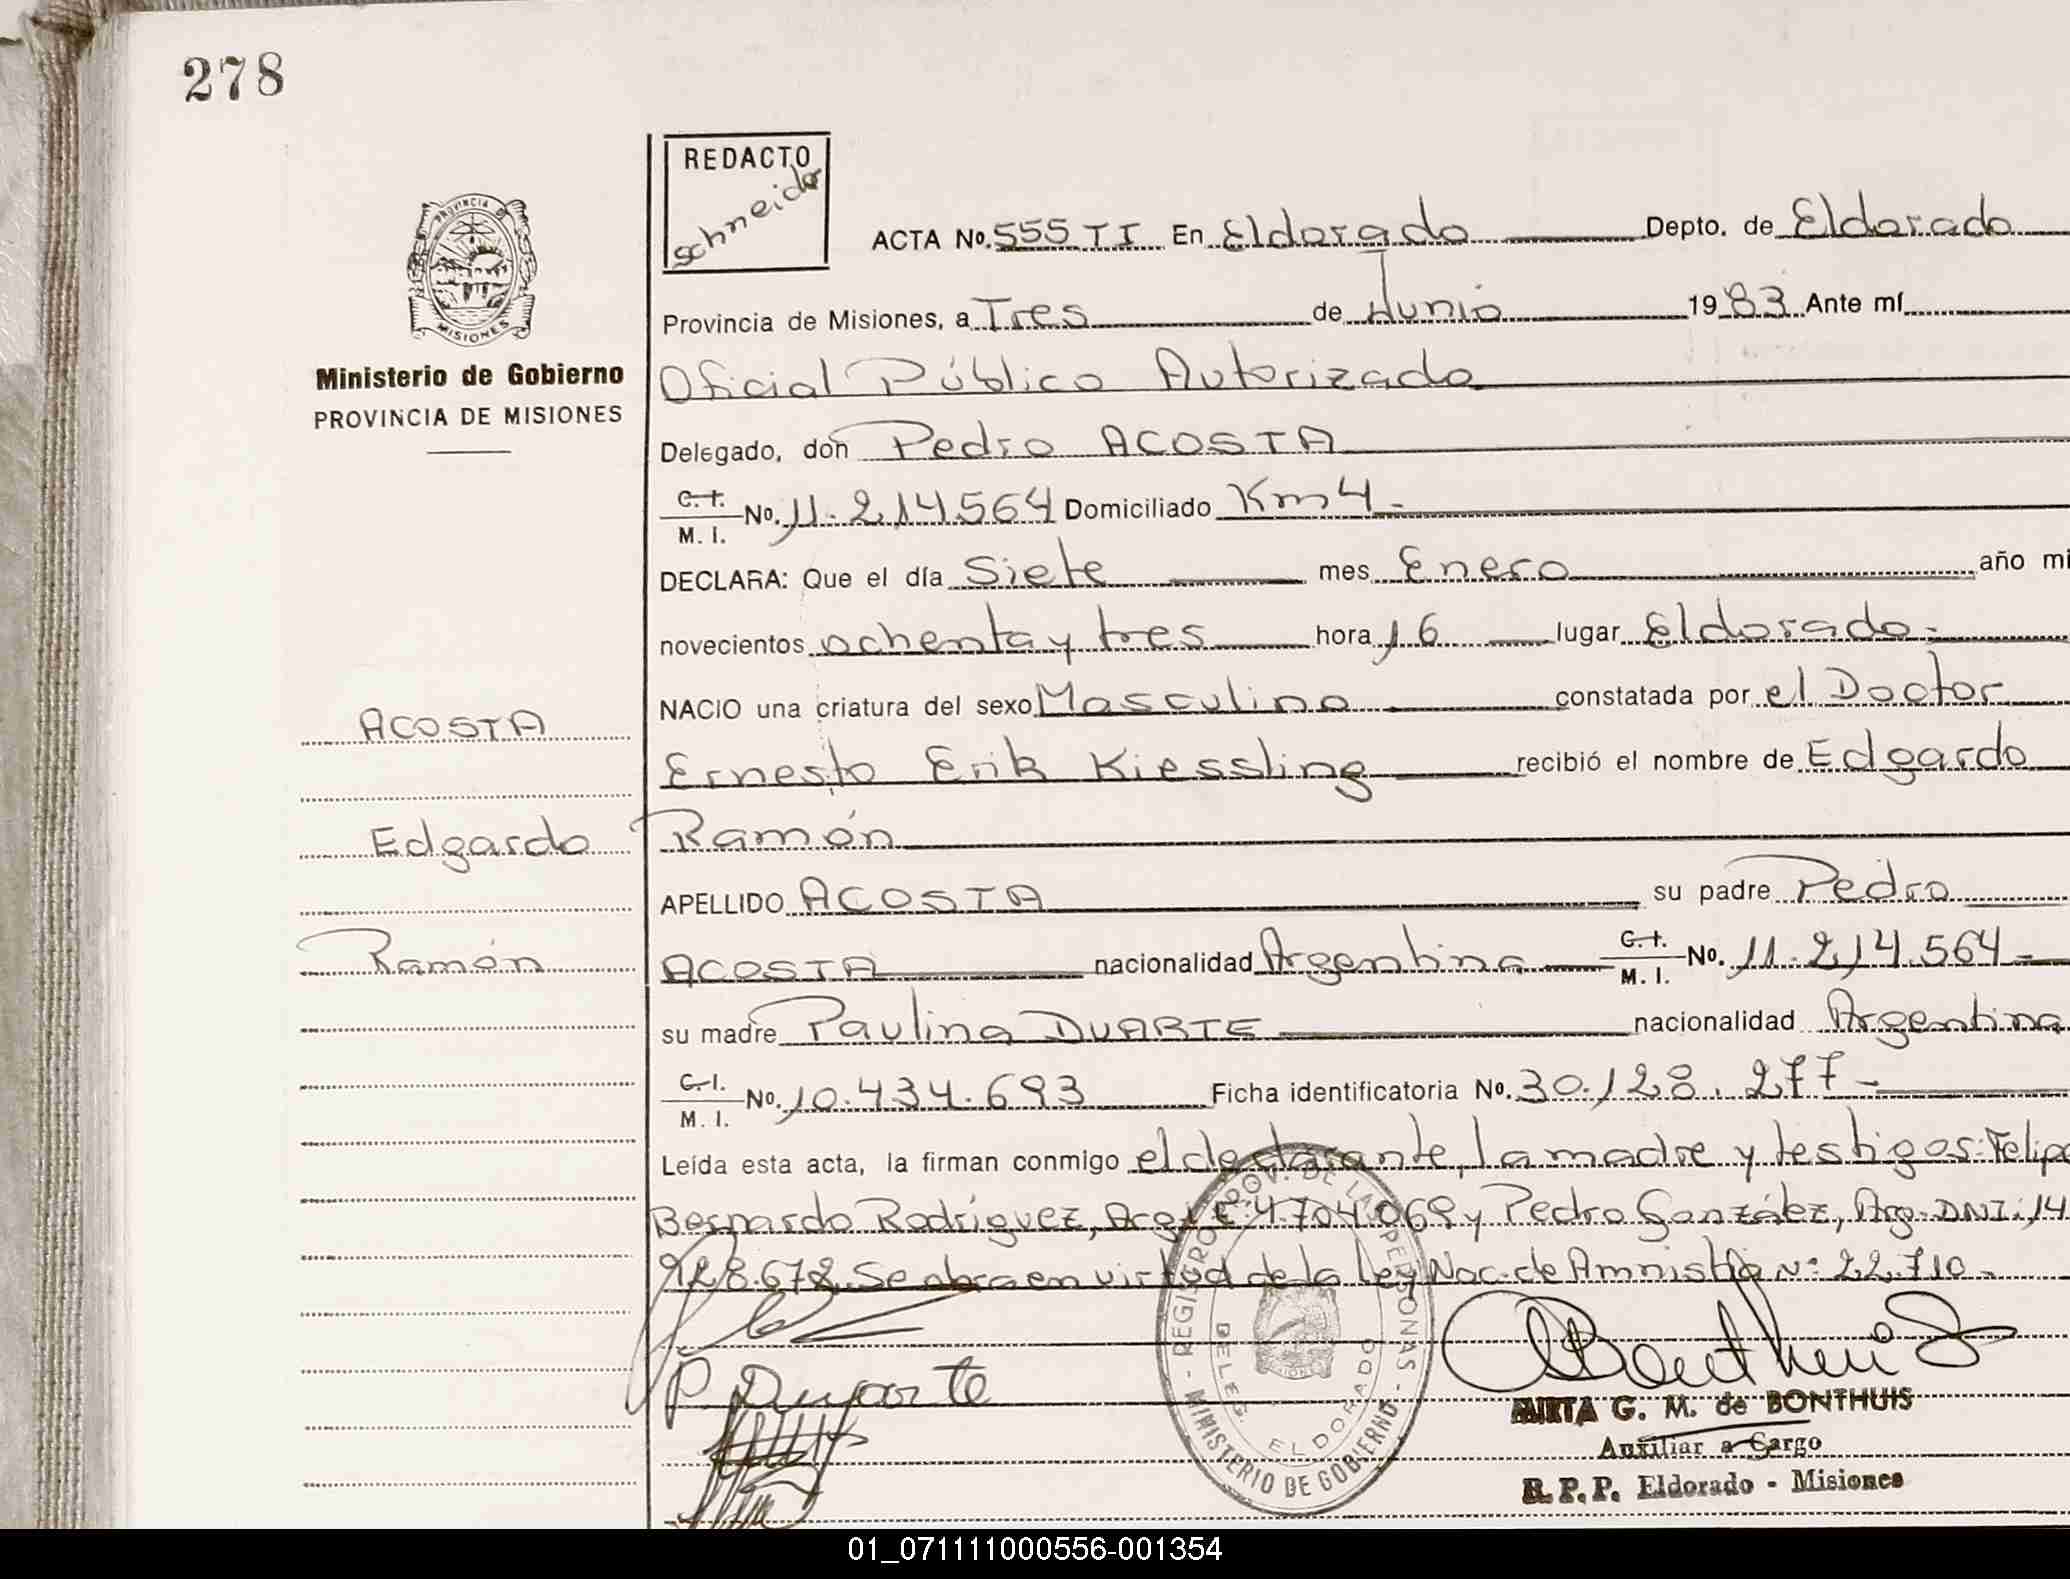 278
REDACTO
Schneider
ACTA No. 555 TI En Eldorado Depto. de Eldorado
Provincia de Misiones, a Tres de Junio 1983 Ante mí
Oficial Público Autorizado
Delegado, don Pedro ACOSTA
C.I. M. I. No. 11.214.564 Domiciliado Km 4.-
DECLARA: Que el día Siete mes Enero año mi
novecientos ochenta y tres hora 16 lugar Eldorado.-
NACIO una criatura del sexo Masculino constatada por el Doctor
Ernesto Erik Kiessling recibió el nombre de Edgardo
Ramón
APELLIDO ACOSTA su padre Pedro
ACOSTA nacionalidad Argentina C.I. M. I. No. 11.214.564-
su madre Paulina DUARTE nacionalidad Argentina
C.I. M. I. No. 10.434.693 Ficha identificatoria No. 30.128.277-
Leída esta acta, la firman conmigo el declarante, la madre y testigos: Felipe
Bernardo Rodríguez, Arg. L.E. 4.704.069 y Pedro González, Arg. DNI: 14
.678. Se labra en virtud de la Ley Nac. de Amnistía Nº 22.710.-
P. Duarte
Bonthuis
MIRTA G. M. de BONTHUIS
Auxiliar a Cargo
R. P. P. Eldorado - Misiones
- REGISTRO PROV. DE LAS PERSONAS -
MINISTERIO DE GOBIERNO
DELEG. ELDORADO
PROVINCIA DE
MISIONES
Ministerio de Gobierno
PROVINCIA DE MISIONES
ACOSTA
Edgardo
Ramón
01_071111000556-001354